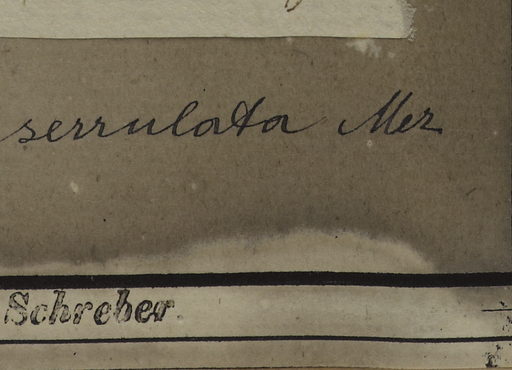 serrulata Mer
Schreber.